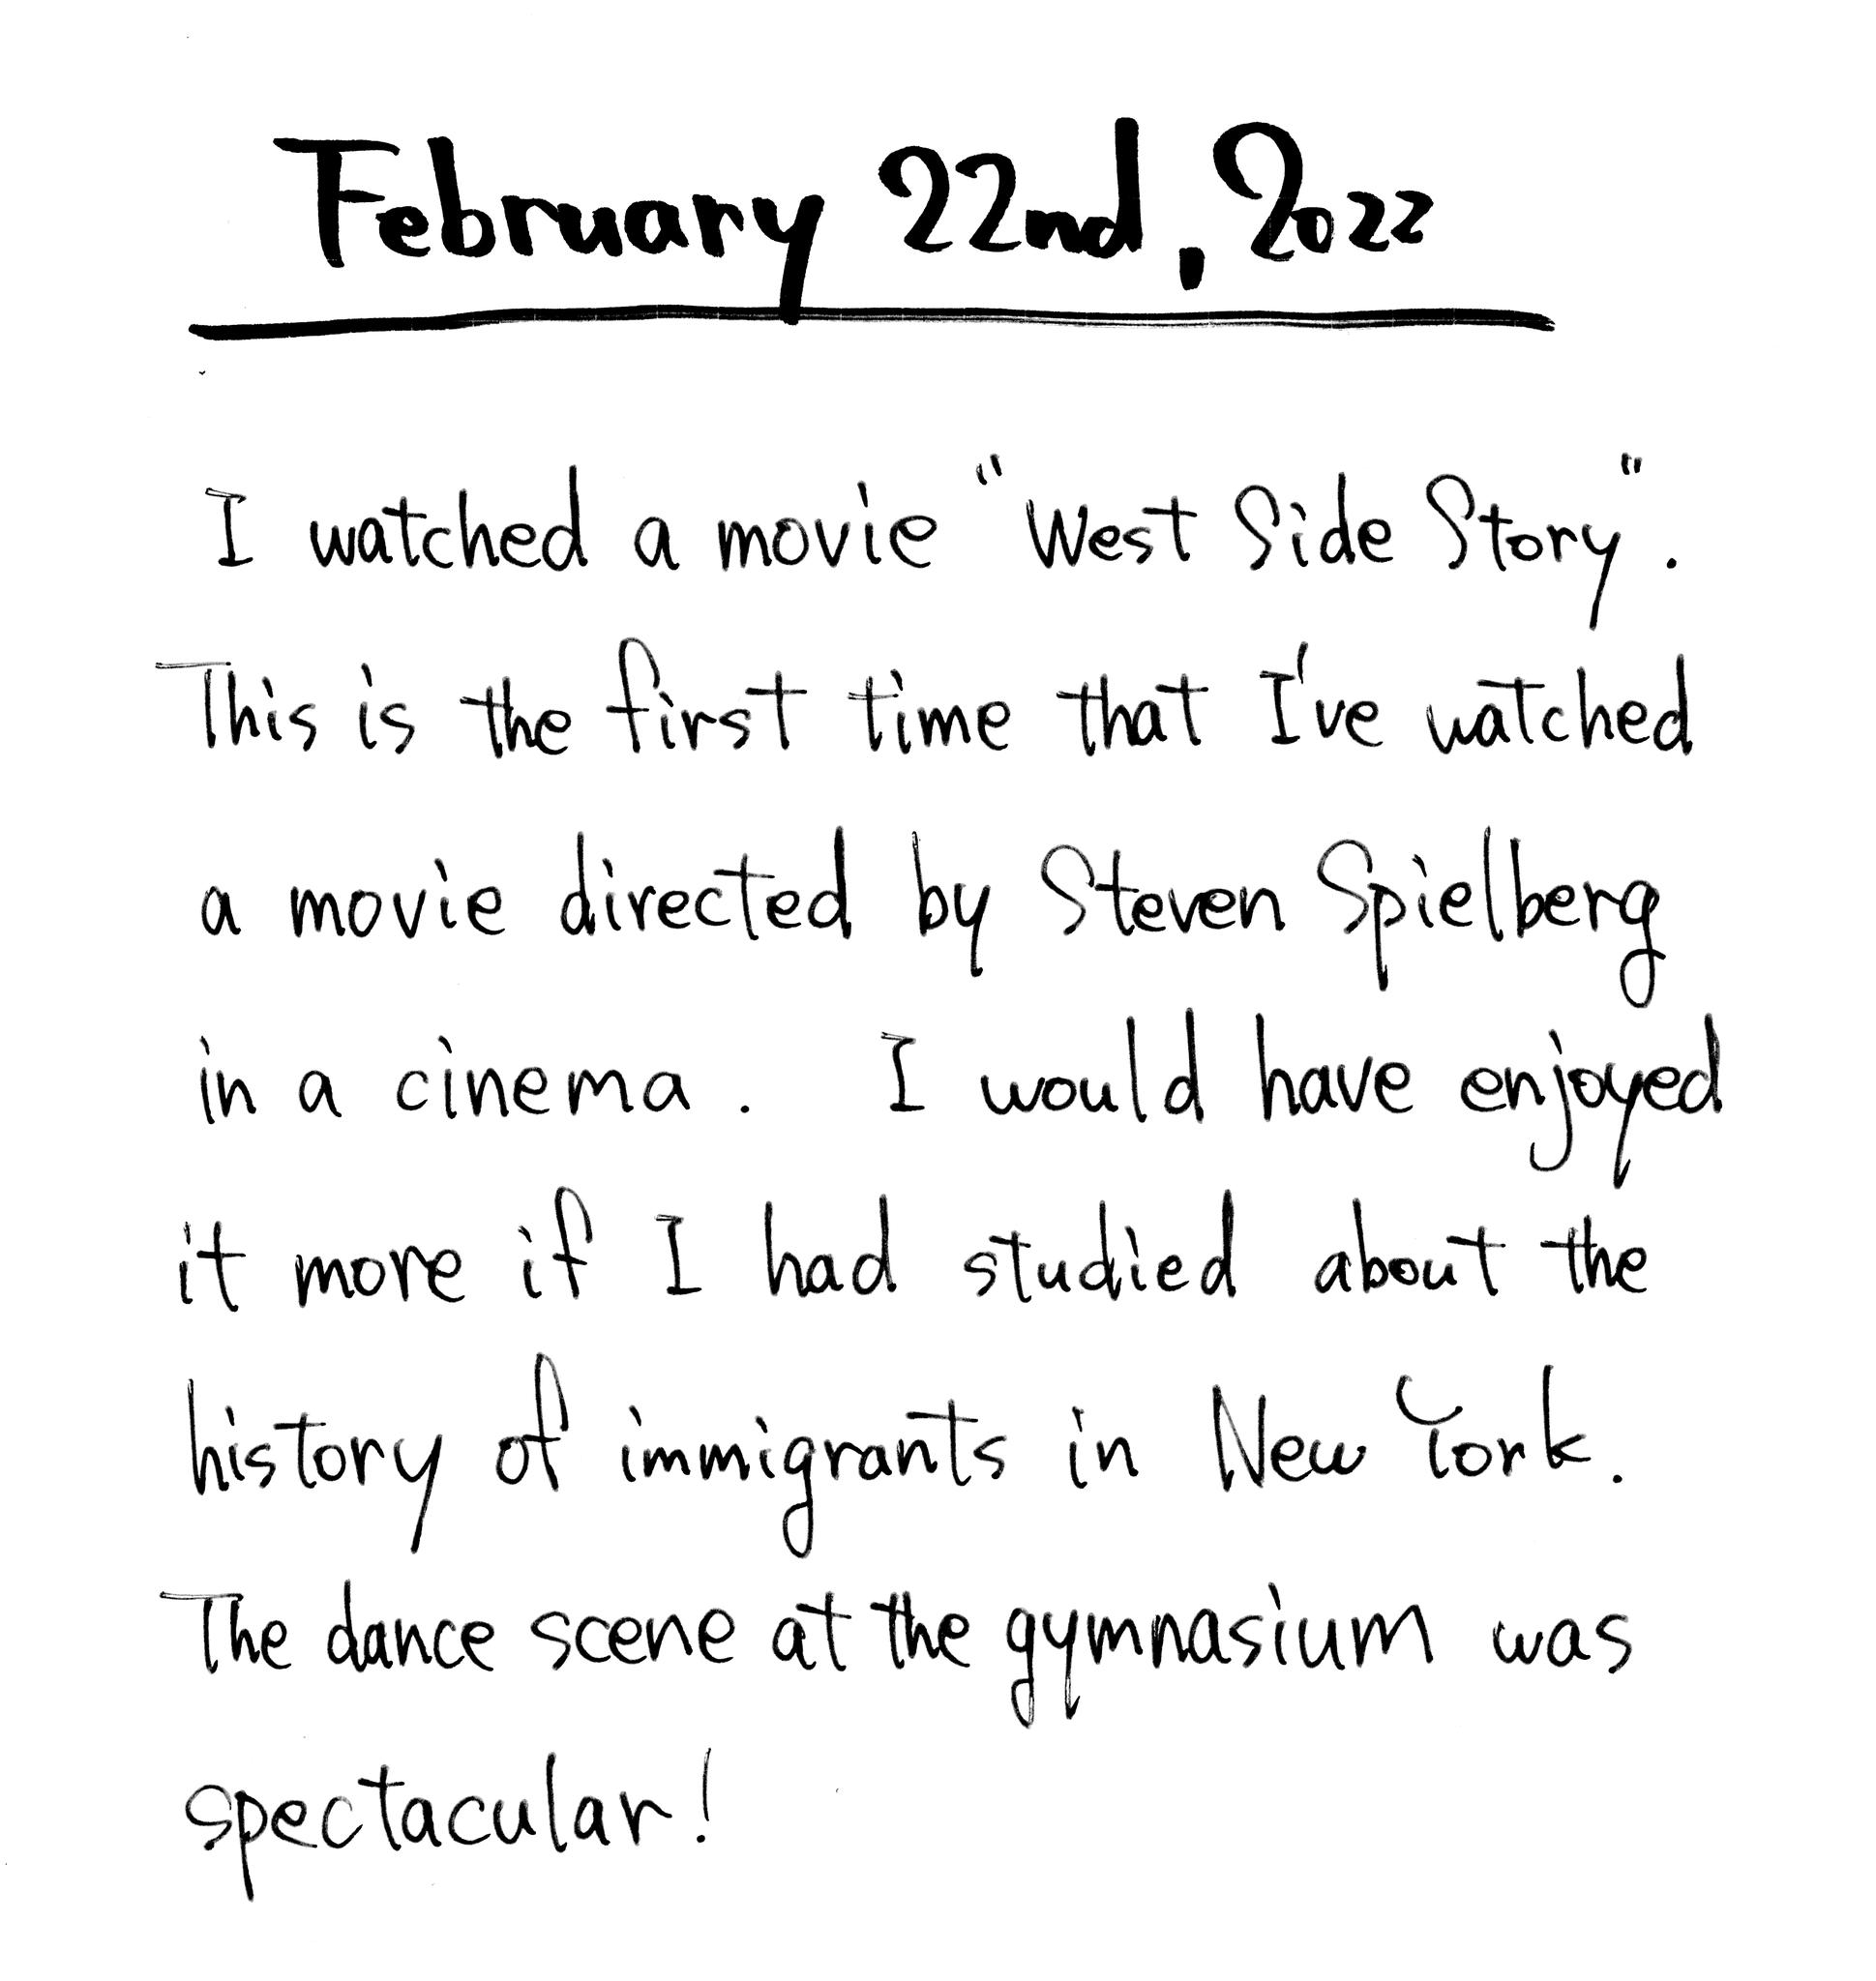 February 22nd, 2022
I watched a movie "West Side Story".
This is the first time that I've watched
a movie directed by Steven Spielberg
in a cinema. I would have enjoyed
it more if I had studied about the
history of immigrants in New York.
The dance scene at the gymnasium was
spectacular!